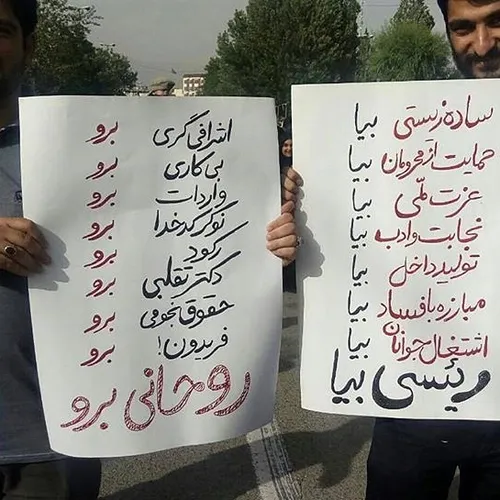 ساده زیستی بیا
حمایت از محرومان بیا
عزت ملّی بیا
نجابت و ادب بیا
تولید داخل بیا
مبارزه با فساد بیا
اشتغال جوانان بیا
رئیسی بیا
اشرافی گری برو
بی کاری برو
واردات برو
نوکر کدخدا برو
رکود برو
دکتر تقلبی برو
حقوق نجومی برو
فریدون! برو
روحانی برو